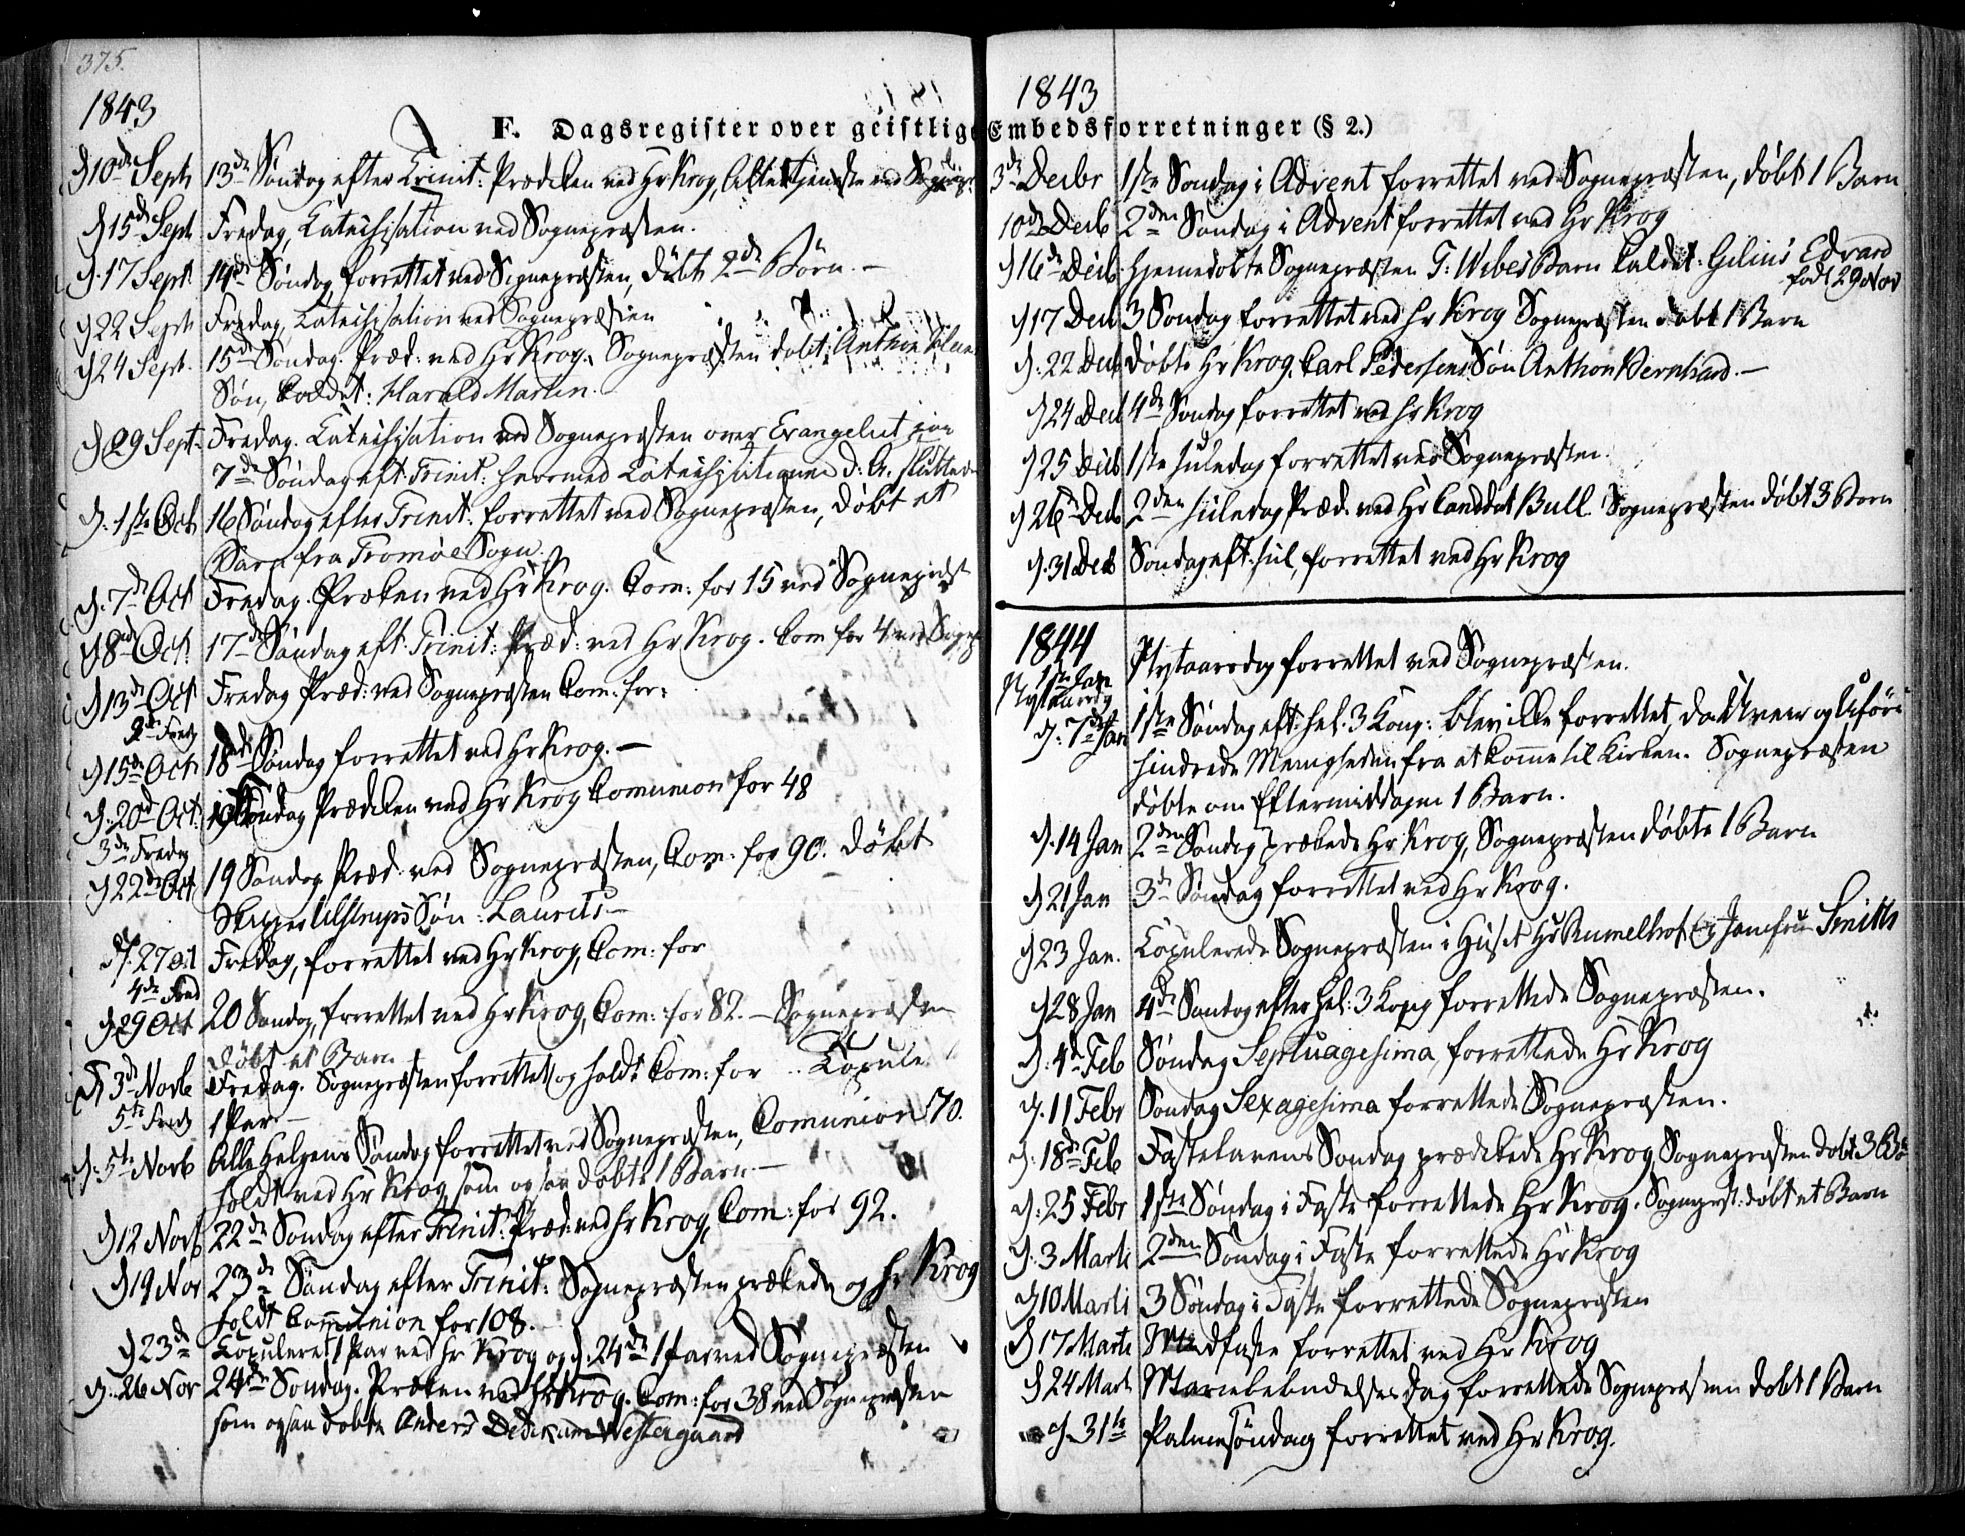 375.
1843
F. Dagsregister over geistlige
d 10de Sept 13de Søndag efter Trinit: Prædiken ved Hr Krog, Altertjeneste ved Sognepr
d 15de Sept Fredag, Catechisation ved Sognepræsten.
d. 17 Sept. 14de Søndag forrettet ved Sognepræsten, døbt 2de Børn. —
d 22 Sept Fredag, Catechisation ved Sognepræsten
d 24 Sept. 15de Søndag. Præd: ved Hr Krog. Sognepræsten døbt
Søn, kaldet: Harald Martin.
d 29 Sept. Fredag. Catechisation ved Sognepræsten over Evangeliet paa
7de Søndag eft. Trinit: hvormed Catechisationerne d: A. sluttedes
d. 1ste Oct 16 Søndag efter Trinit: forrettet ved Sognepræsten, døbt et
Barn fra Tromøe Sogn.
d. 7de Oct Fredag. Præken ved Hr Krog. Com: for 15 ved Sognepræst
d 8de Oct. 17de Søndag eft. Trinit: Præd: ved Hr Krog. Com for 4 ved Sognepr
d 13de Oct Fredag Præd: ved Sognepræsten Com: for:
2de Fredg
d 15de Oct 18de Søndag forrettet ved Hr Krog. —
d. 20de Oct. Prædiken ved Hr Krog Comunion for 48
3de Fredg
d 22de Oct 19 Søndag Præd: ved Sognepræsten, Com: for 90. døbt
Skipper Ulstrups Søn: Laurits —
d. 27 Oct Fredag, forrettet ved Hr Krog, Com: for
4de Fred
d 29 Oct 20 Søndag, forrettet ved Hr Krog, Com: for 82. — Sognepræsten
døbt et Barn
d 3de Novb Fredag. Sognepræsten forrettet og holdt Com: for .. Copule
5te Fredg 1 Par —
d. 5te Novb Alle Helgens Søndag forrettet ved Sognepræsten, Comunion 70.
holdt ved Hr Krog, som ogsaa døbte 1 Barn —
d 12 Novb 22de Søndag efter Trinit: Præd: ved Hr Krog, Com: for 92.
d 19 Nov 23de Søndag efter Trinit: Sognepræsten prækede og Hr Krog
holdt Communion for 108.
d 23de Copuleret 1 Par ved Hr Krog og d. 24de 1 Par ved Sognepræsten
d. 26 Nov 24de Søndag. Præken ved Hr Krog. Com: for 38 ved Sognepræsten
som ogsaa døbte Anders Westergaard
1843
Embedsforretninger (§ 2.)
3de Decbr 1ste Søndag i Advent forrettet ved Sognepræsten, døbt 1 Barn
10de Decb 2den Søndag i Advent forrettet ved Hr Krog
d 16de Decb. Hjemedøbte Sognepræsten T: Wibes Barn kaldet: Gilius Edvard
født 29 Nov
d 17 Decb 3 Søndag forrettet ved Hr Krog Sognepræsten døbt 1 Barn
d. 22 Decb Døbte Hr Krog, Carl Pedersens Søn Anthon Bernhard. —
d 24 Decb 4de Søndag forrettet ved Hr Krog
d 25 Decb 1ste Juledag forrettet ved Sognepræsten.
d 26de Decb 2den Juledag Præd: ved Hr Canddat Bull. Sognepræsten døbt 3 Børn
d. 31 Decb Søndag eft: Jul, forrettet ved Hr Krog
1844
1ste Jan Nytaarsdag forrettet ved Sognepræsten.
Nytaarsdg
d. 7de Jan 1ste Søndag eft: hel: 3 Kong: blev ikke forrettet, da Uveir og Uføre
hindrede Menigheden fra at komme til Kirken. Sognepræsten
døbte om Eftermiddagen 1 Barn.
d. 14 Jan 2den Søndag prækede Hr Krog, Sognepræsten døbte 1 Barn
d 21 Jan 3de Søndag forrettet ved Hr Krog.
d 23 Jan. Copulerede Sognepræsten i Huset Hr Rumelhof og Jomfru Smith
d 28 Jan 4de Søndag efter Hel: 3 Kong forrettede Sognepræsten.
d. 4de Feb Søndag Septuagesima forrettede Hr Krog
d. 11 Febr Søndag Sexagesima forrettede Sognepræsten.
d. 18de Feb Fastelavens Søndag prædikede Hr Krog, Sognepræsten døbt 3 Bø
d. 25 Febr 1ste Søndag i Faste forrettede Hr Krog. Sogneprst: døbt et Barn
d. 3 Marti 2den Søndag i Faste forrettede Hr Krog
d 10 Marti 3 Søndag i Faste forrettede Sognepræsten
d 17 Marti Midfaste forrettet ved Hr Krog
d 24 Marti Mariæbebudelses Dag forrettede Sognepræsten døbt 1 Barn
d. 31te Palmesøndag forrettet ved Hr Krog.